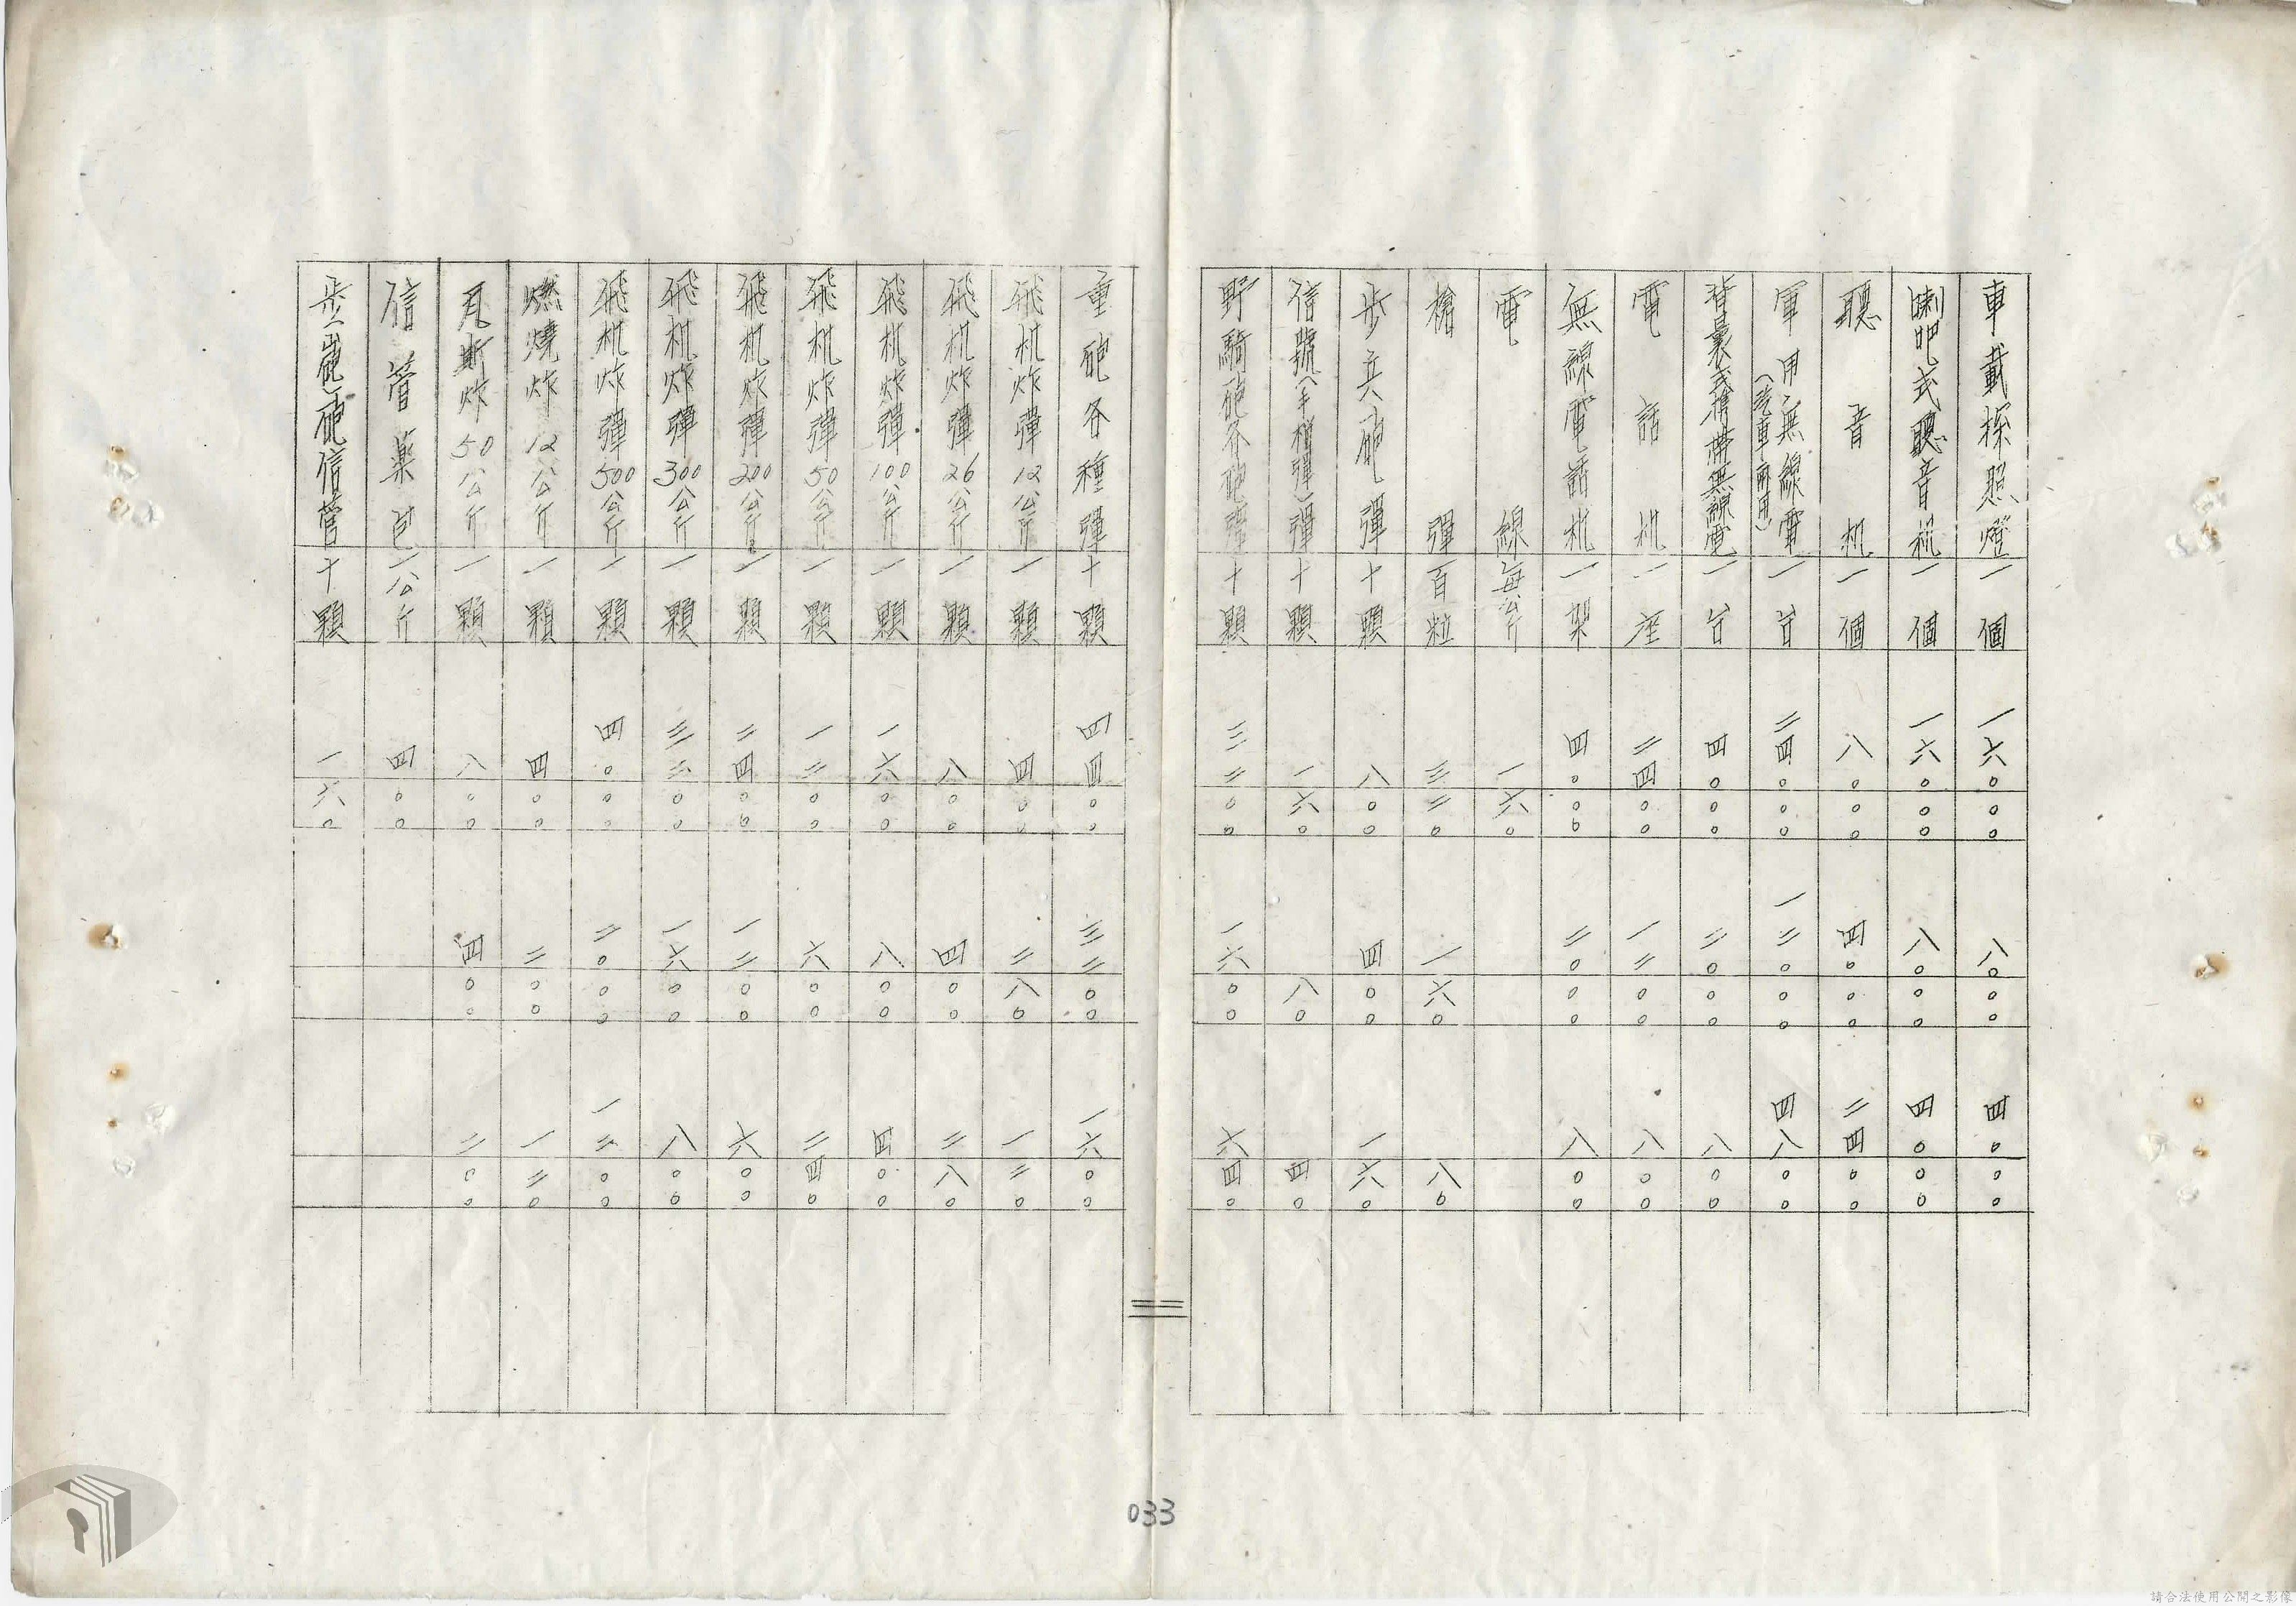 車載探照燈 一個 一六〇〇〇 八〇〇〇 四〇〇〇
喇吧式聽音机 一個 一六〇〇〇 八〇〇〇 四〇〇〇
聽音机 一個 八〇〇〇 四〇〇〇 二四〇〇
軍用無線電(汽車兩用) 一台 二四〇〇〇 一二〇〇〇 四八〇〇
背囊式携帶無線電 一台 四〇〇〇 二〇〇〇 八〇〇
電話机 一座 二四〇〇 一二〇〇 八〇〇
無線電話机 一架 四〇〇〇 二〇〇〇 八〇〇
電線 每公斤 一六〇
槍彈 百粒 三二〇 一六〇 八〇
步兵砲彈 十顆 八〇〇 四〇〇 一六〇
信號(手榴彈)彈 十顆 一六〇 八〇 四〇
野騎砲各砲彈 十顆 三二〇〇 一六〇〇 六四〇
重砲各種彈 十顆 四四〇〇 三二〇〇 一六〇〇
飛机炸彈12公斤 一顆 四〇〇 二八〇 一二〇
飛机炸彈26公斤 一顆 八〇〇 四〇〇 二八〇
飛机炸彈100公斤 一顆 一六〇〇 八〇〇 四〇〇
飛机炸彈50公斤 一顆 一二〇〇 六〇〇 二四〇
飛机炸彈200公斤 一顆 二四〇〇 一二〇〇 六〇〇
飛机炸彈300公斤 一顆 三二〇〇 一六〇〇 八〇〇
飛机炸彈500公斤 一顆 四〇〇〇 二〇〇〇 一二〇〇
燃燒炸12公斤 一顆 四〇〇 二〇〇 一二〇
瓦斯炸50公斤 一顆 八〇〇 四〇〇 二〇〇
信管藥包 一公斤 四〇〇
步(山砲)砲信管 十顆 一六〇
033
請合法使用公開之影像